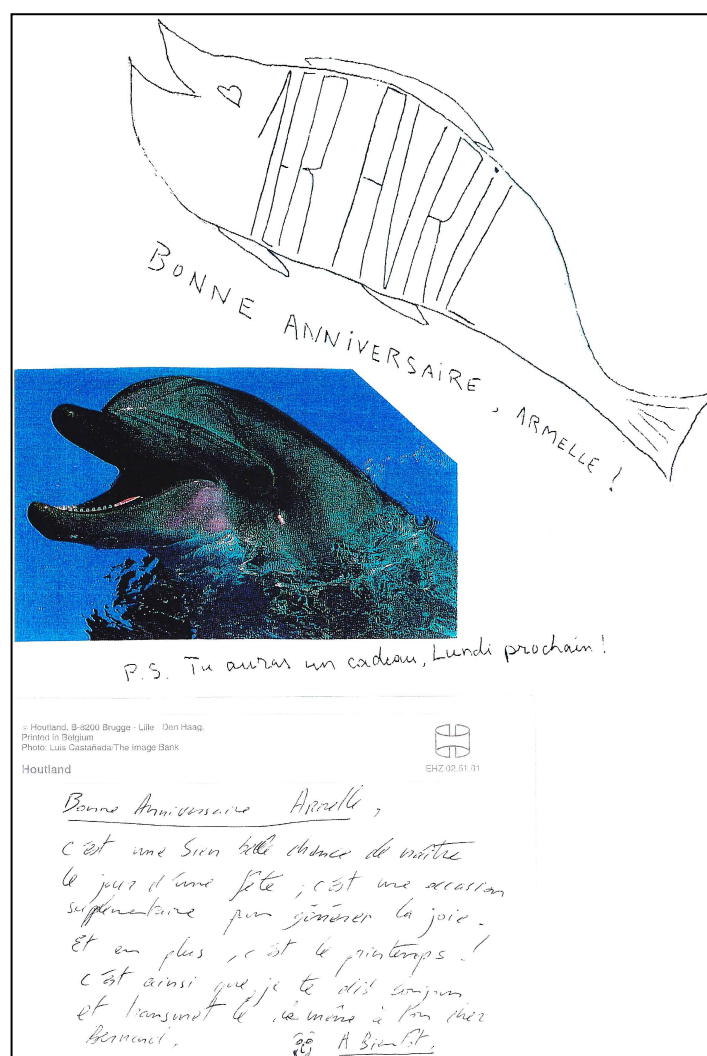 BONNE ANNIVERSAIRE, ARMELLE !
P.S. Tu auras un cadeau, Lundi prochain !
Houtland, B-8200 Brugge - Lille Den Haag.
Printed in Belgium
Photo: Luis Castañeda/The Image Bank
Houtland
EHZ 02.61.01
Bonne Anniversaire Armelle,
c'est une bien belle chance de naître
le jour d'une fête ; c'est une occasion
suplémentaire pour générer la joie.
Et en plus, c'est le printemps !
c'est ainsi que je te dis bonjour
et transmet le même à ton cher
Bernard.
A Bientôt.